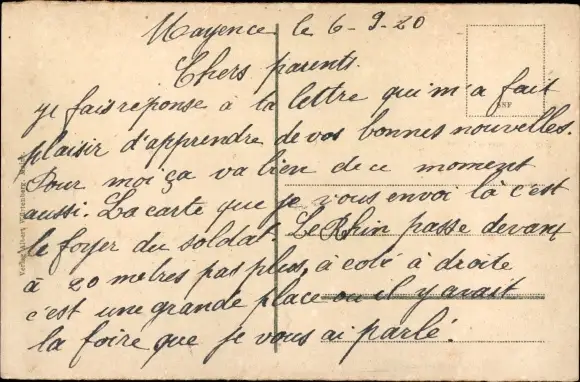 Mayence le 6-9-20
Chers parents.
Je fais réponse à ta lettre qui m'a fait
plaisir d'apprendre de vos bonnes nouvelles.
Pour moi ça va bien de ce moment
aussi. La carte que je vous envoi là c'est
le foyer du soldat. Le Rhin passe devant
à 20 metres pas plus, à coté à droite
c'est une grande place ou il y avait
la foire que je vous ai parlé.
SSF
Verlag Albert Württenberg, Mainz